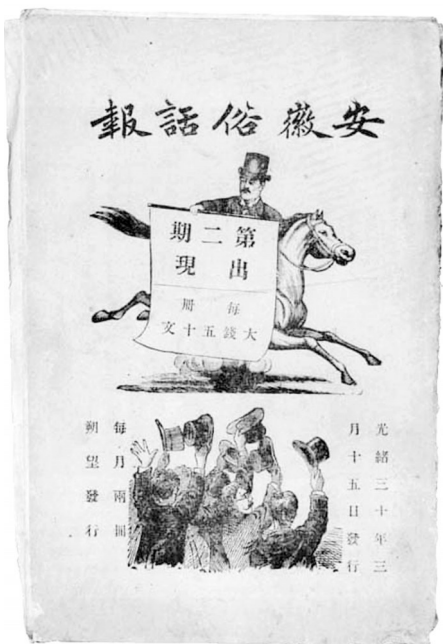 安徽俗話報
第二期
出現
每冊
大錢五十文
光緒三十年三
月十五日發行
每月兩回
朔望發行